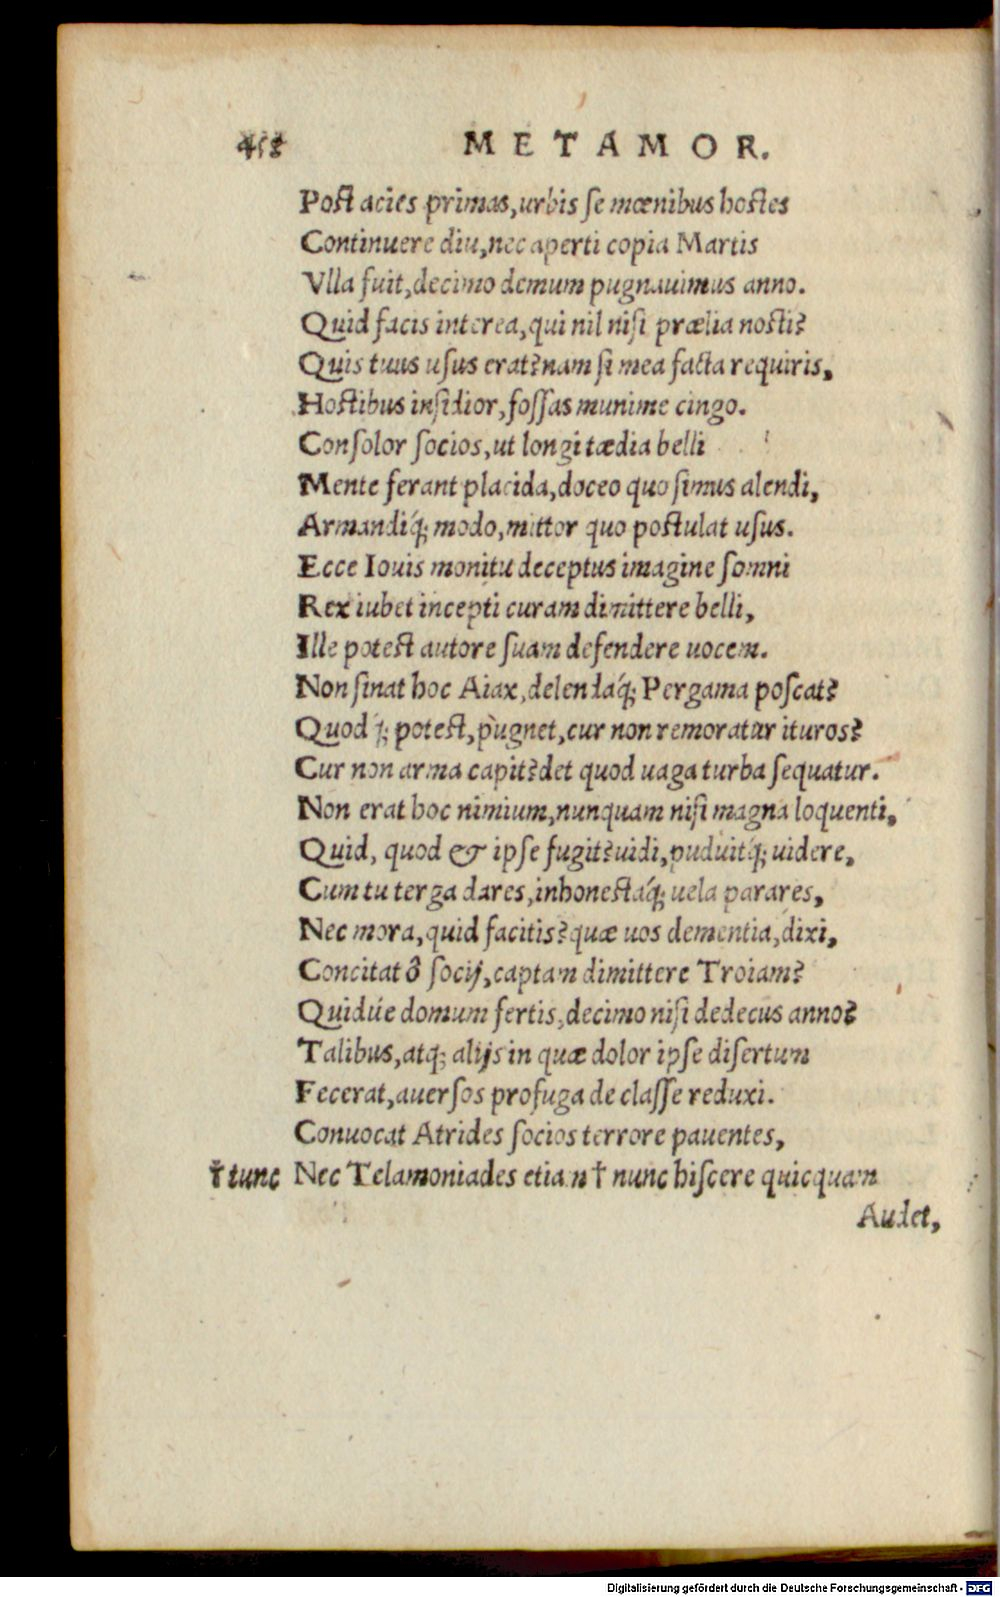 METAMOR.
Post acies primas, urbis se mœnibus hostes
Continuere diu, nec aperti copia Martis
Vlla fuit, decimo demum pugnauimus anno.
Quid facis interea, qui nil nisi prælia nosti?
Quis tuus usus erat? nam si mea facta requiris,
Hostibus insidior, fossas munime cingo.
Consolor socios, ut longi tædia belli
Mente ferant placida, doceo quo simus alendi,
Armandíq; modo, mittor quo postulat usus.
Ecce Iouis monitu deceptus imagine somni
Rex iubet incepti curam dimittere belli,
Ille potest autore suam defendere uocem.
Non sinat hoc Aiax, delendáq; Pergama poscat?
Quod q́; potest, pugnet, cur non remoratur ituros?
Cur non arma capit? det quod uaga turba sequatur.
Non erat hoc nimium, nunquam nisi magna loquenti,
Quid, quod & ipse fugit? uidi, puduitq́; uidere,
Cum tu terga dares, inhonestáq; uela parares,
Nec mora, quid facitis? quæ uos dementia, dixi,
Concitat ô socij, captam dimittere Troiam?
Quidúe domum fertis, decimo nisi dedecus anno?
Talibus, atq; alijs in quæ dolor ipse disertum
Fecerat, auersos profuga de classe reduxi.
Conuocat Atrides socios terrore pauentes,
† tunc Nec Telamoniades etiam † nunc hiscere quicquam
Audet,
Digitalisierung gefördert durch die Deutsche Forschungsgemeinschaft - DFG